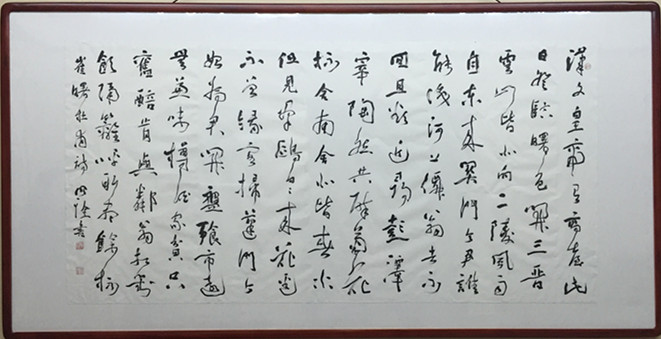 漢文皇帝有高臺此
日登臨曙色開三晉
雲山皆北向二陵風雨
自東來關門令尹誰
能識河上僊翁去不
回且欲近尋彭澤
宰陶然共醉菊花
杯舍南舍北皆春水
但見群鷗日日來花徑
不曾緣客掃蓬門今
始為君開盤飧市遠
無兼味樽酒家貧只
舊醅肯與鄰翁相對
飲隔籬呼取盡餘杯
崔曙杜甫詩 書